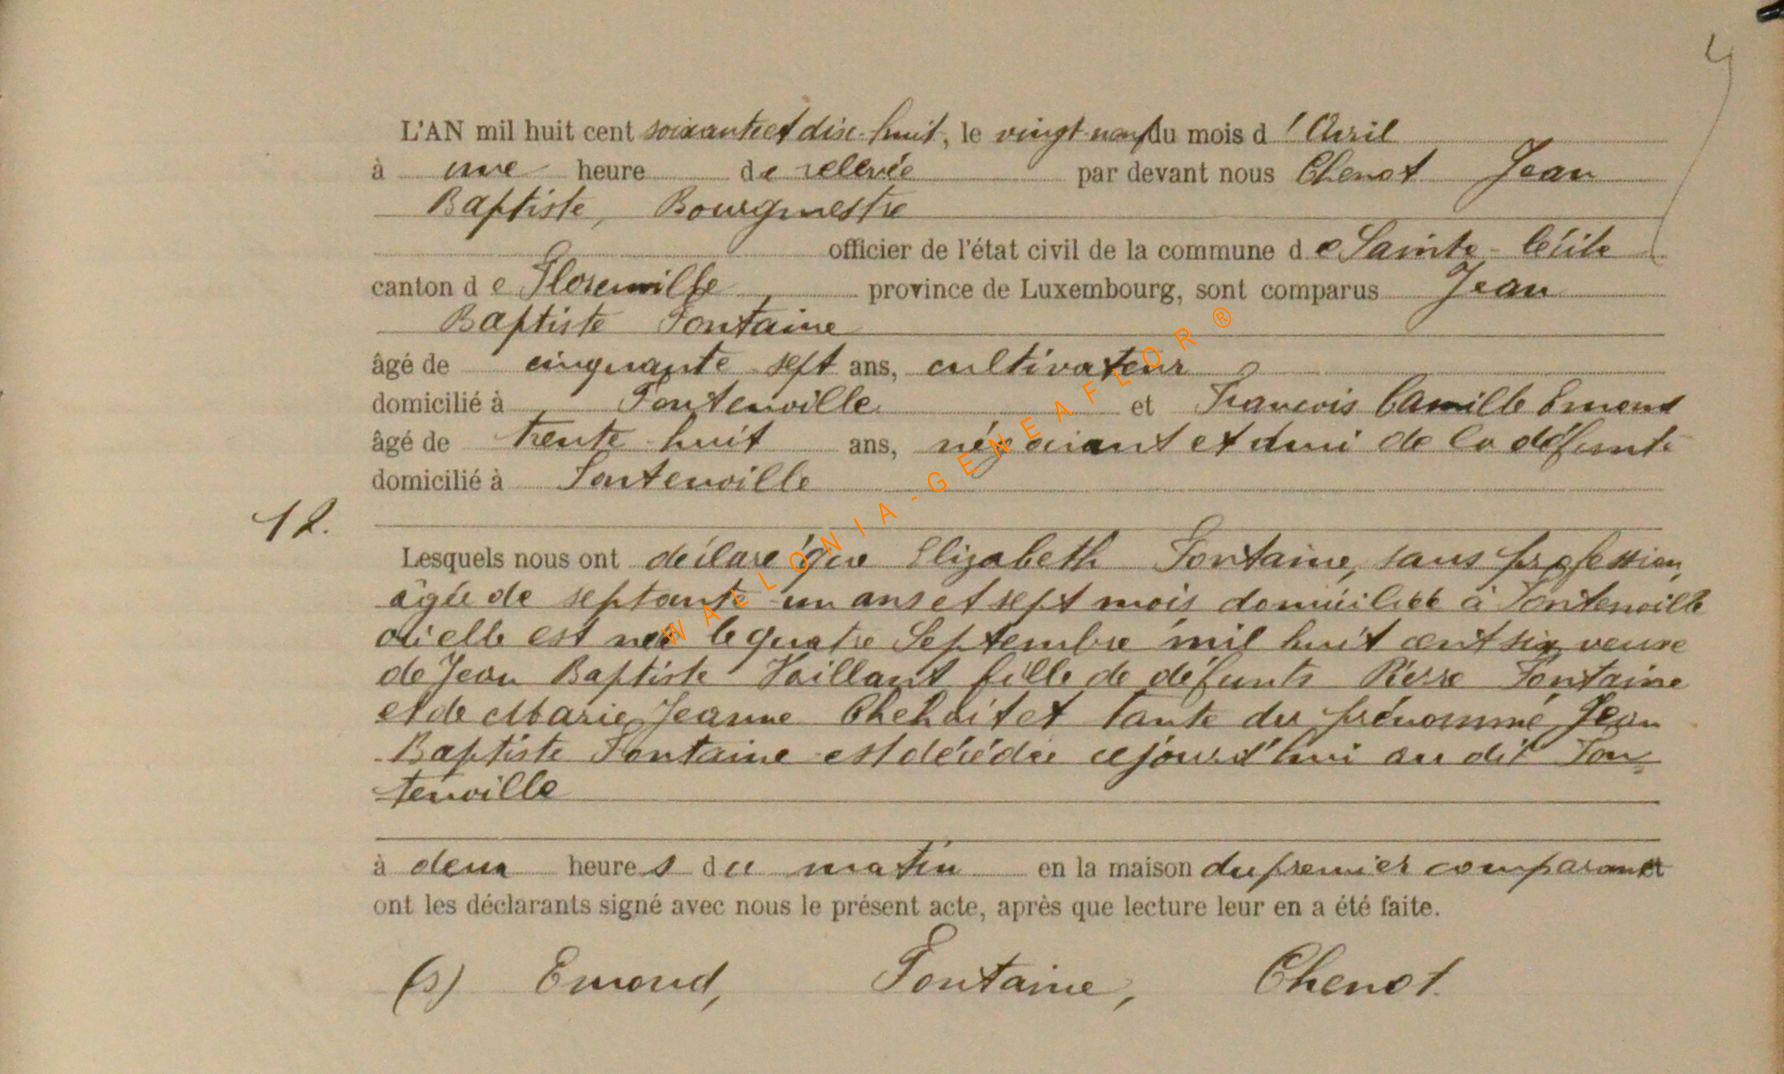 4
L'AN mil huit cent soixante et dix-huit, le vingt-neuf du mois d'Avril
à une heure de relevée par devant nous Chenot Jean
Baptiste, Bourgmestre
officier de l'état civil de la commune de Sainte-Cécile
canton de Florenville province de Luxembourg, sont comparus Jean
Baptiste Fontaine
âgé de cinquante sept ans, cultivateur
domicilié à Fontenoille et François Camille Emond
âgé de trente-huit ans, négociant et ami de la défunte
domicilié à Fontenoille
12.
Lesquels nous ont déclaré que Elizabeth Fontaine, sans profession,
âgée de septante-un ans et sept mois domiciliée à Fontenoille
où elle est née le quatre Septembre mil huit cent six veuve
de Jean Baptiste Vaillant fille de défunts Pierre Fontaine
et de Marie Jeanne et tante du prénommé Jean
Baptiste Fontaine est décédée cejourd'hui au dit Fon-
tenoille
à deux heures du matin en la maison du premier comparant et
ont les déclarants signé avec nous le présent acte, après que lecture leur en a été faite.
(s) Emond, Fontaine, Chenot.
WALLONIA-GENEAFLOR®